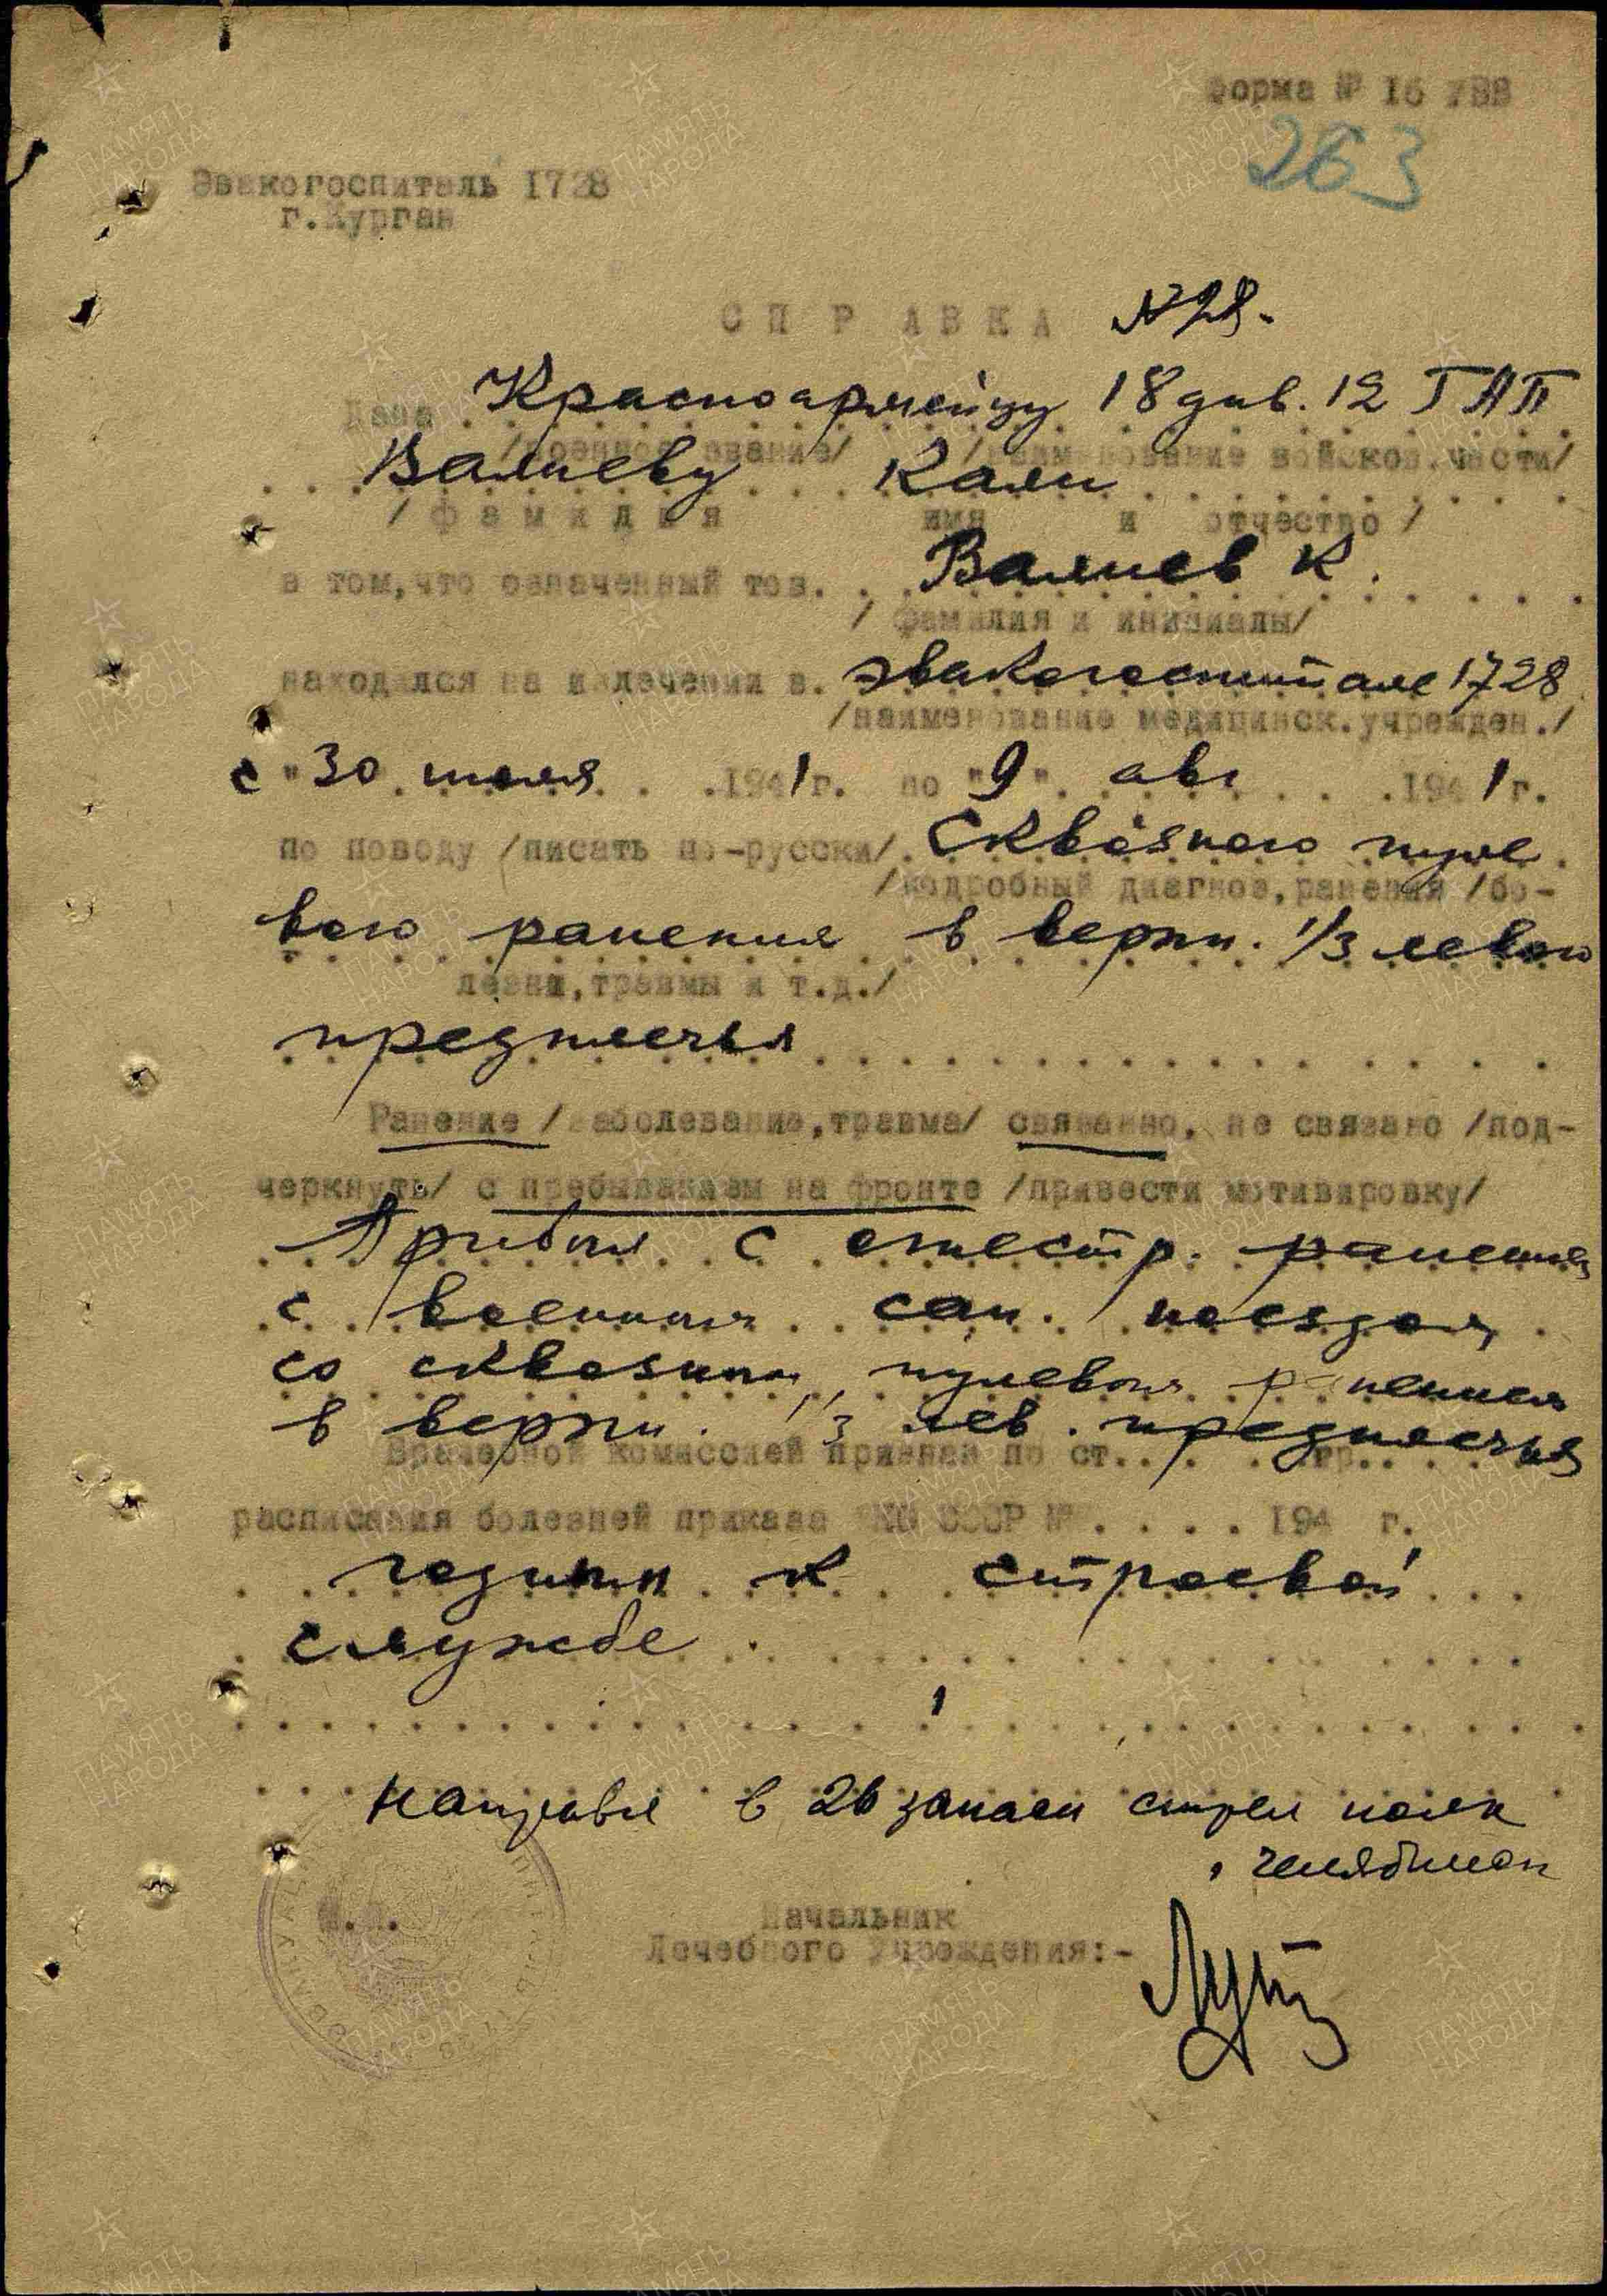 Форма № 16 УВВ
263
Эвакогоспиталь 1728
г.Курган
СПРАВКА №28.
Дана Красноармейцу 18 див. 12 ГАП
/военное звание/ /наименование войсков.части/
Валиеву Кали
/фамилия имя и отчество/
в том,что означенный тов. Валиев К.
/фамилия и инициалы/
находился на излечении в. эвакогоспитале 1728
/наименование медицинск.учрежден./
с "30 июля 1941г. по "9" авг 1941г.
по поводу /писать по-русски/ Сквозного пуле
/подробный диагноз,ранения /бо-
вого ранения в верхн. 1/3 левого
лезни,травмы и т.д./
предплечья
Ранение /заболевание,травма/ связанно, не связано /под-
черкнуть/ с пребыванием на фронте /привести мотивировку/
Прибыл с огнестр. ранением
с военным сан. поездом
со сквозным пулевым ранением
в верхн. 1/3 лев. предплечья
Врачебной комиссией признан по ст. гр.
расписания болезней приказа НКО СССР № 194 г.
годным к строевой
службе.
Направл в 26 запасн стрел полк
г. Челябинск
М.П.
Начальник
Лечебного Учреждения:-